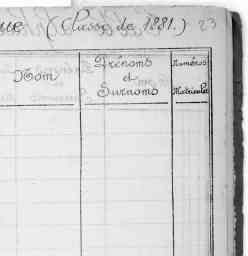 ue (Classe de 1881.) 23
Nom
Prénoms
et
Surnoms
Numéros
Matricules